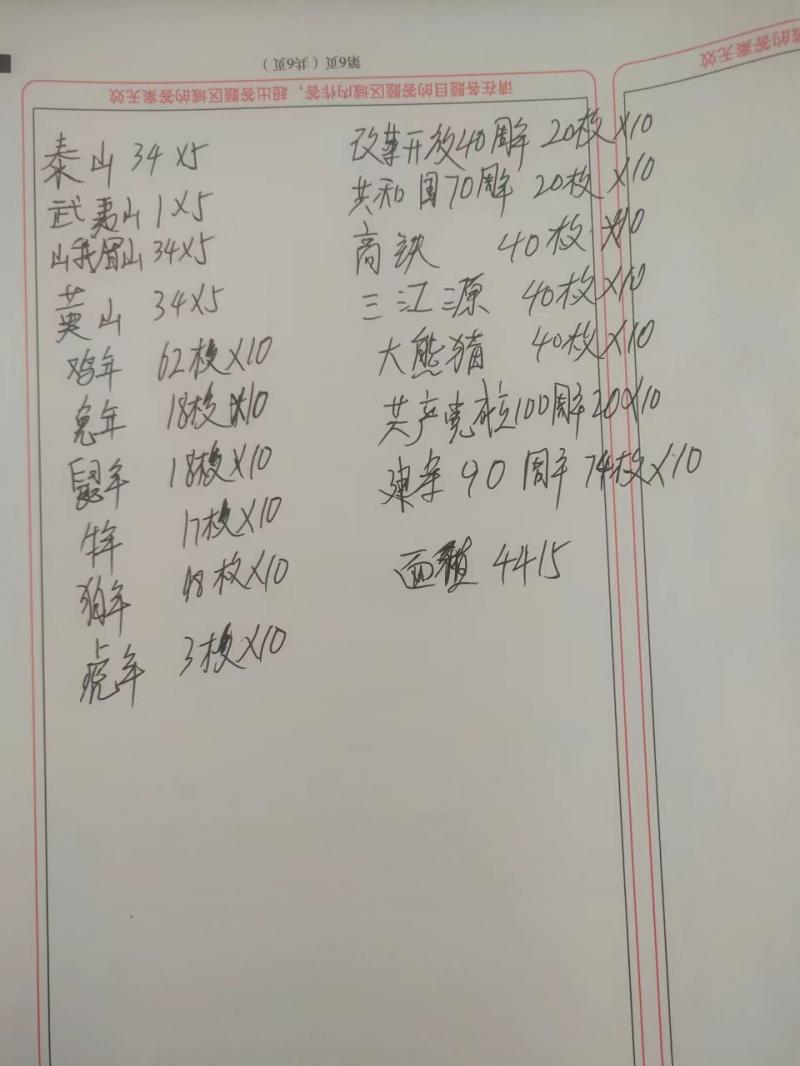 第6页（共6页）
请在各题目的答题区域内作答，超出答题区域的答案无效
域的答案无效
泰山 34×5
武夷山 1×5
峨眉山 34×5
黄山 34×5
鸡年 62枚×10
兔年 18枚×10
鼠年 18枚×10
牛年 17枚×10
狗年 18枚×10
虎年 3枚×10
改革开放40周年 20枚×10
共和国70周年 20枚×10
高铁 40枚×10
三江源 40枚×10
大熊猫 40枚×10
共产党成立100周年20×10
建军90周年 74枚×10
面值 4415